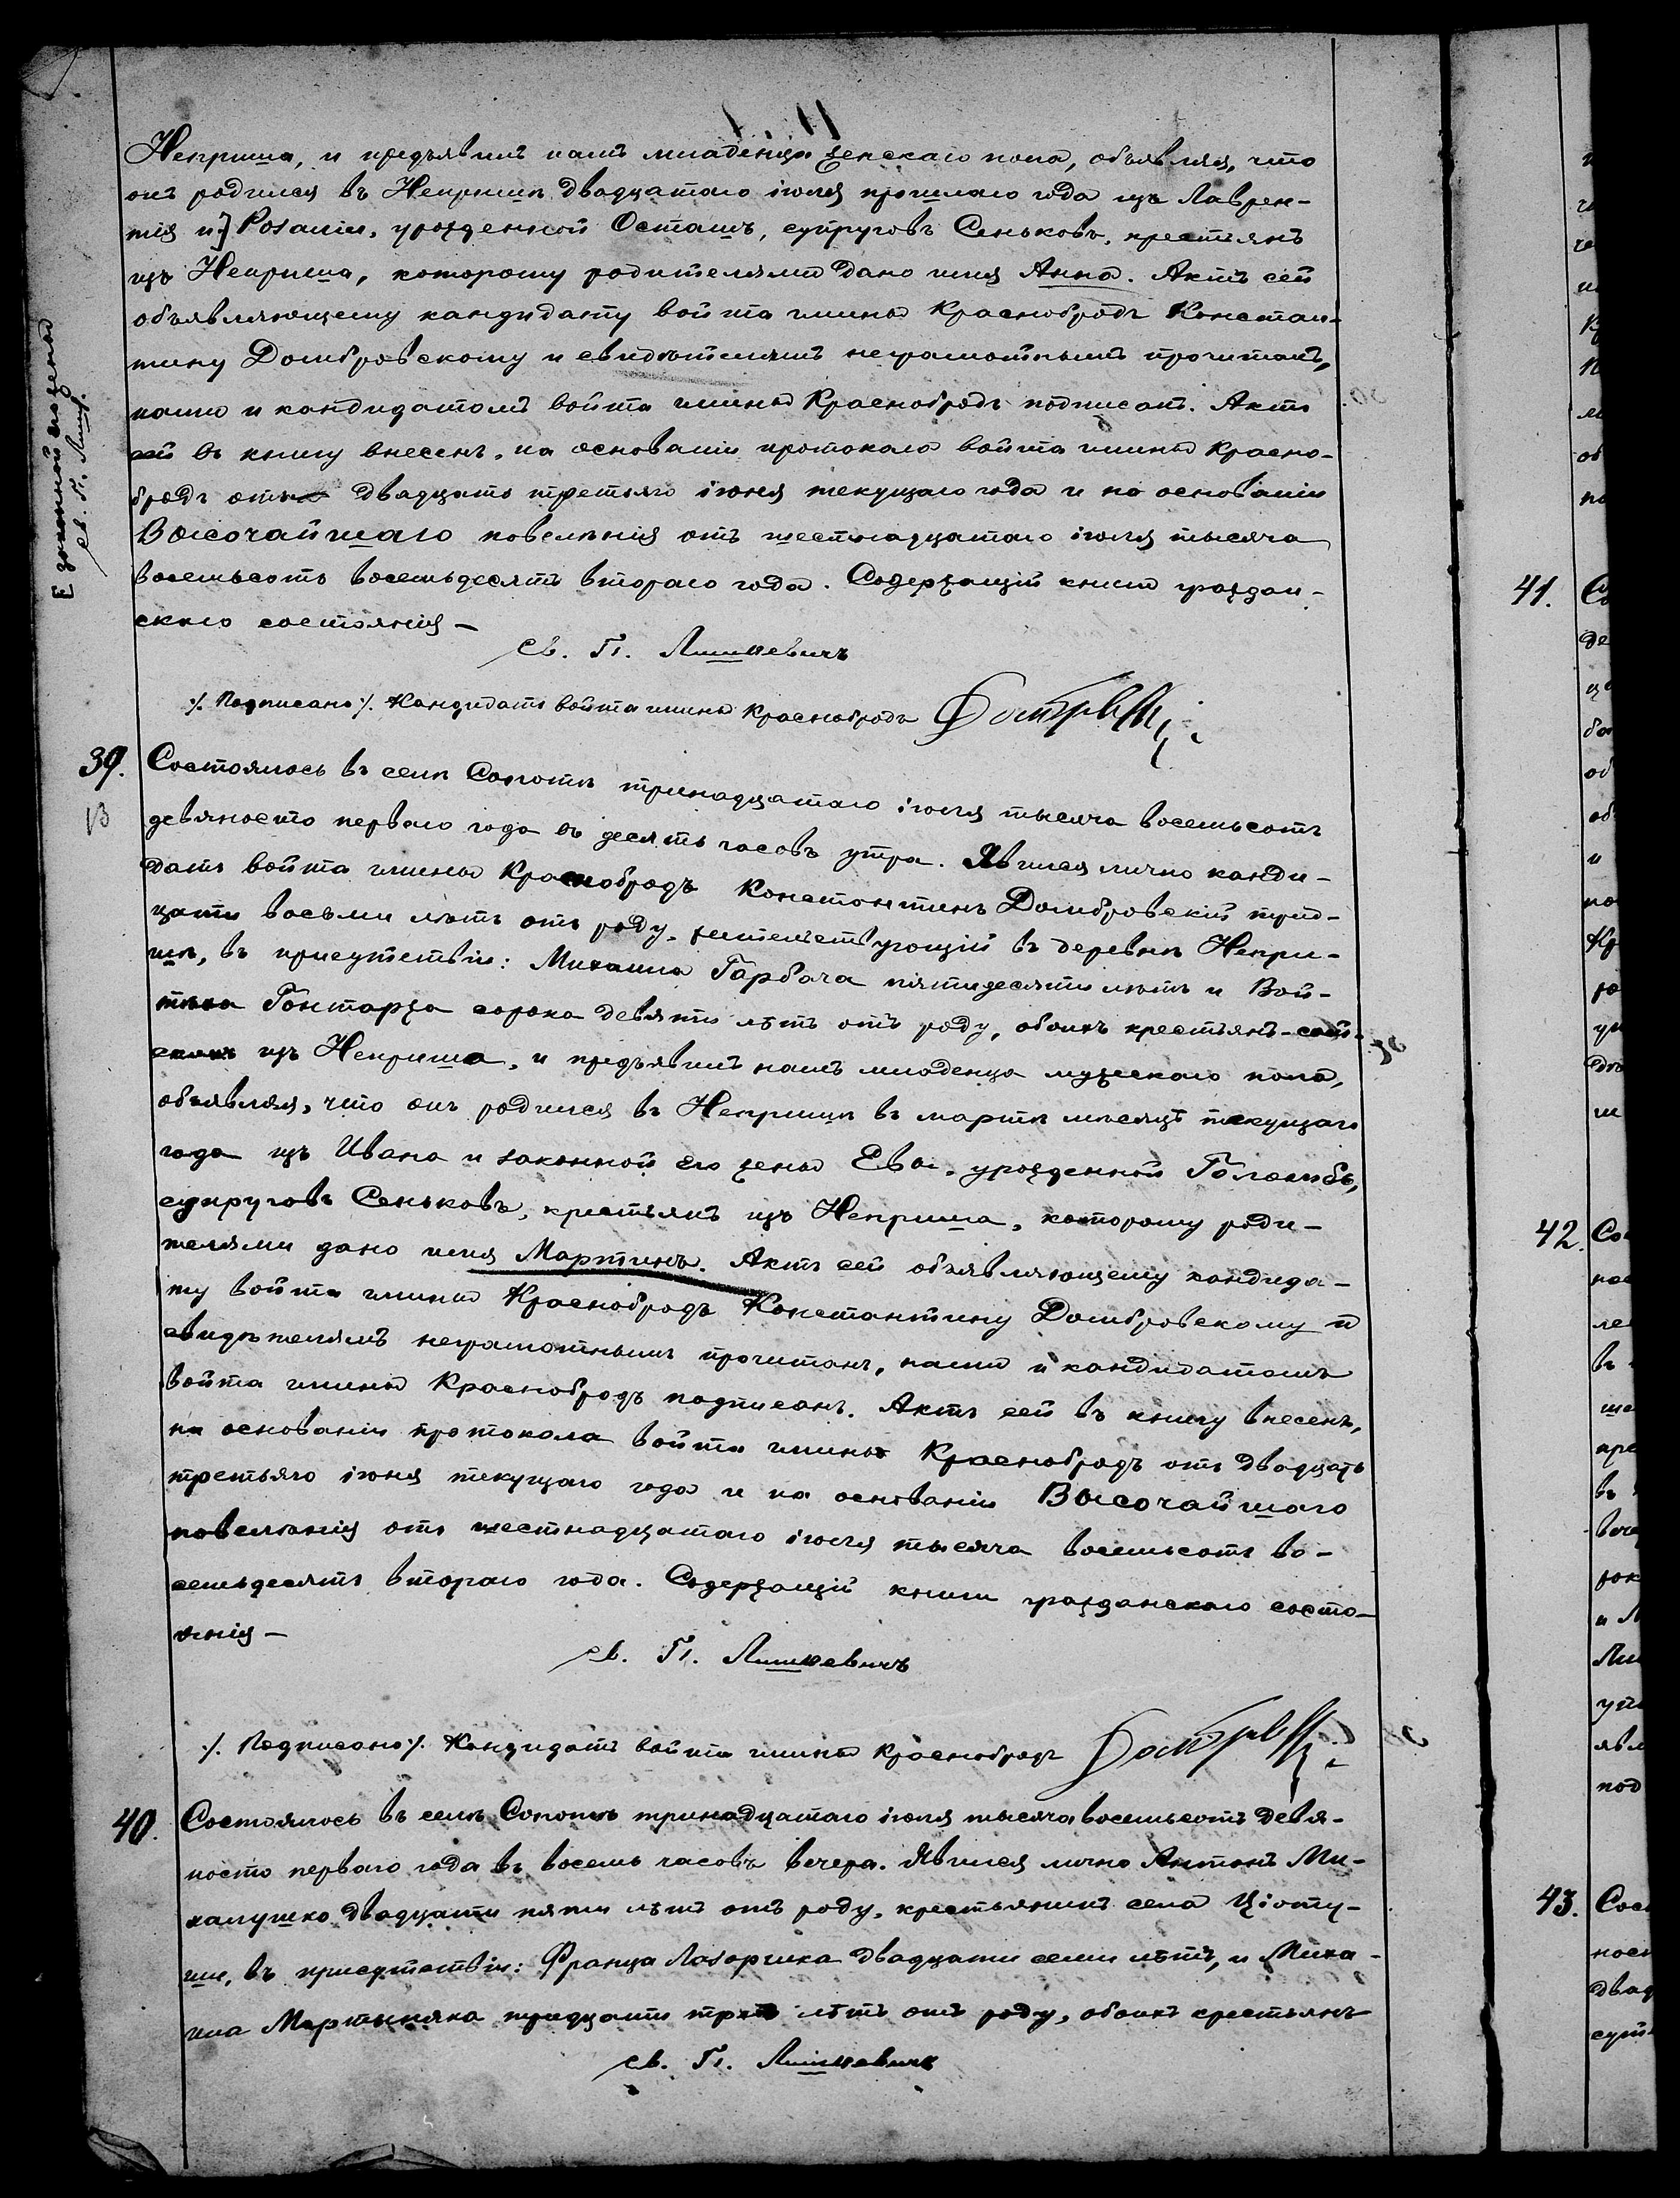 Неприша, и предъявилъ намъ младенца женскаго пола, объявляя, что
онъ родился въ Непришѣ двадцатаго іюля прошлаго года изъ Лаврен-
тія и} Розаліи, урожденной Осташъ, супруговъ Сеньковъ, крестьянъ
изъ Неприша, которому родителями дано имя Анна. Актъ сей
объявляющему кандидату войта гмины Краснобродъ Констан-
тину Домбровскому и свидѣтелямъ неграмотнымъ прочитанъ,
нами и кандидатомъ войта гмины Краснобродъ подписанъ. Актъ
сей въ книгу внесенъ, на основаніи протокола войта гмины Красно-
бродъ отъ двадцать третьяго іюня текущаго года и на основаніи
Высочайшаго повелѣнія отъ шестнадцатаго іюля тысяча
восемьсотъ восемьдесятъ втораго года. Содержащій книги граждан-
скаго состоянія –
св. П. Лишкевичъ
./. Подписано ./. Кандидатъ войта гмины Краснобродъ
Е законной его жены
св. П. Лишк.
39. Состоялось въ селѣ Сопотѣ тринадцатаго іюля тысяча восемьсотъ
девяносто перваго года въ десять часовъ утра. Явился лично канди-
датъ войта гмины Краснобродъ Константинъ Домбровскій трид-
цати восьми лѣтъ отъ роду, жительствующій въ деревнѣ Непри-
шѣ, въ присутствіи: Михаила Гарбача пятидесяти лѣтъ и Вой-
тѣха Гонтаржа сорока девяти лѣтъ отъ роду, обоихъ крестьянъ
изъ Неприша, и предъявилъ намъ младенца мужескаго пола,
объявляя, что онъ родился въ Непришѣ въ мартѣ мѣсяцѣ текущаго
года изъ Ивана и законной его жены Евы, урожденной Голембъ,
супруговъ Сеньковъ, крестьянъ изъ Неприша, которому роди-
телями дано имя Мартинъ. Актъ сей объявляющему кандида-
ту войта гмины Краснобродъ Константину Домбровскому и
свидѣтелямъ неграмотнымъ прочитанъ, нами и кандидатомъ
войта гмины Краснобродъ подписанъ. Актъ сей въ книгу внесенъ,
на основаніи протокола войта гмины Краснобродъ отъ двадцать
третьяго іюня текущаго года и на основаніи Высочайшаго
повелѣнія отъ шестнадцатаго іюля тысяча восемьсотъ во-
семьдесятъ втораго года. Содержащій книги гражданскаго состо-
янія –
св. П. Лишкевичъ
./. Подписано ./. Кандидатъ войта гмины Краснобродъ
40. Состоялось въ селѣ Сопотѣ тринадцатаго іюля тысяча восемьсотъ девя-
носто перваго года въ восемь часовъ вечера. Явился лично Антонъ Ми-
халушко двадцати пяти лѣтъ отъ роду, крестьянинъ села Ціоту-
ши, въ присутствіи: Франца двадцати семи лѣтъ, и Миха-
ила Мартыняка тридцати трехъ лѣтъ отъ роду, обоихъ крестьянъ
св. П. Лишкевичъ
41.
42.
43.